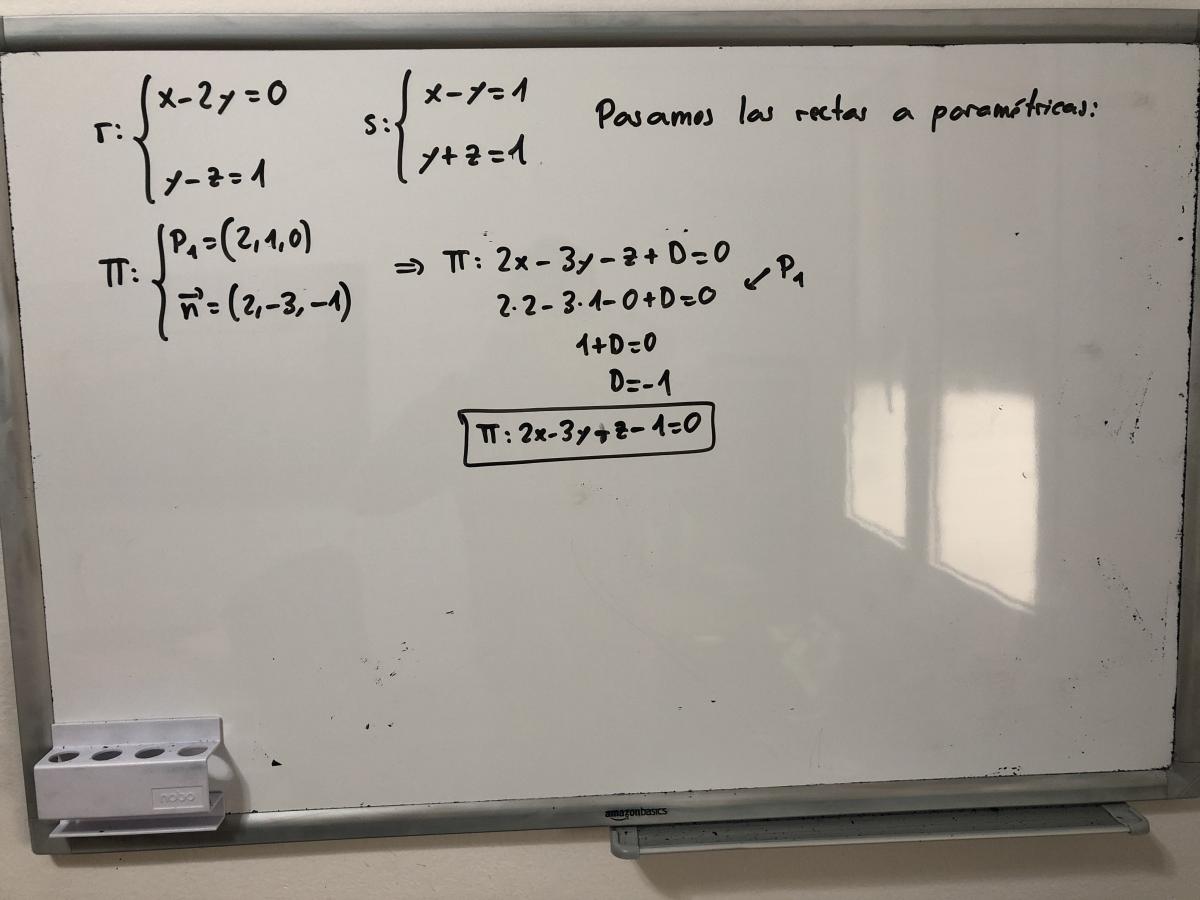 r: { x-2y=0
y-z=1
s: { x-y=1
y+z=1
Pasamos las rectas a paramétricas:
π: { P₁=(2,1,0)
n⃗=(2,-3,-1)
⇒ π: 2x-3y-z+D=0
2·2-3·1-0+D=0 ↙ P₁
1+D=0
D=-1
π: 2x-3y+z-1=0
nobo
amazonbasics